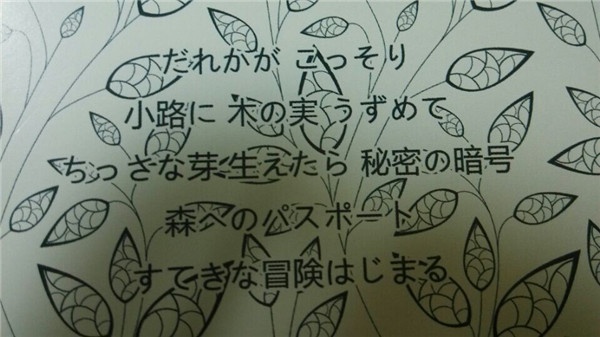 だれかが こっそり
小路に 木の実 うずめて
ちっさな芽生えたら 秘密の暗号
森へのパスポート
すてきな冒険はじまる